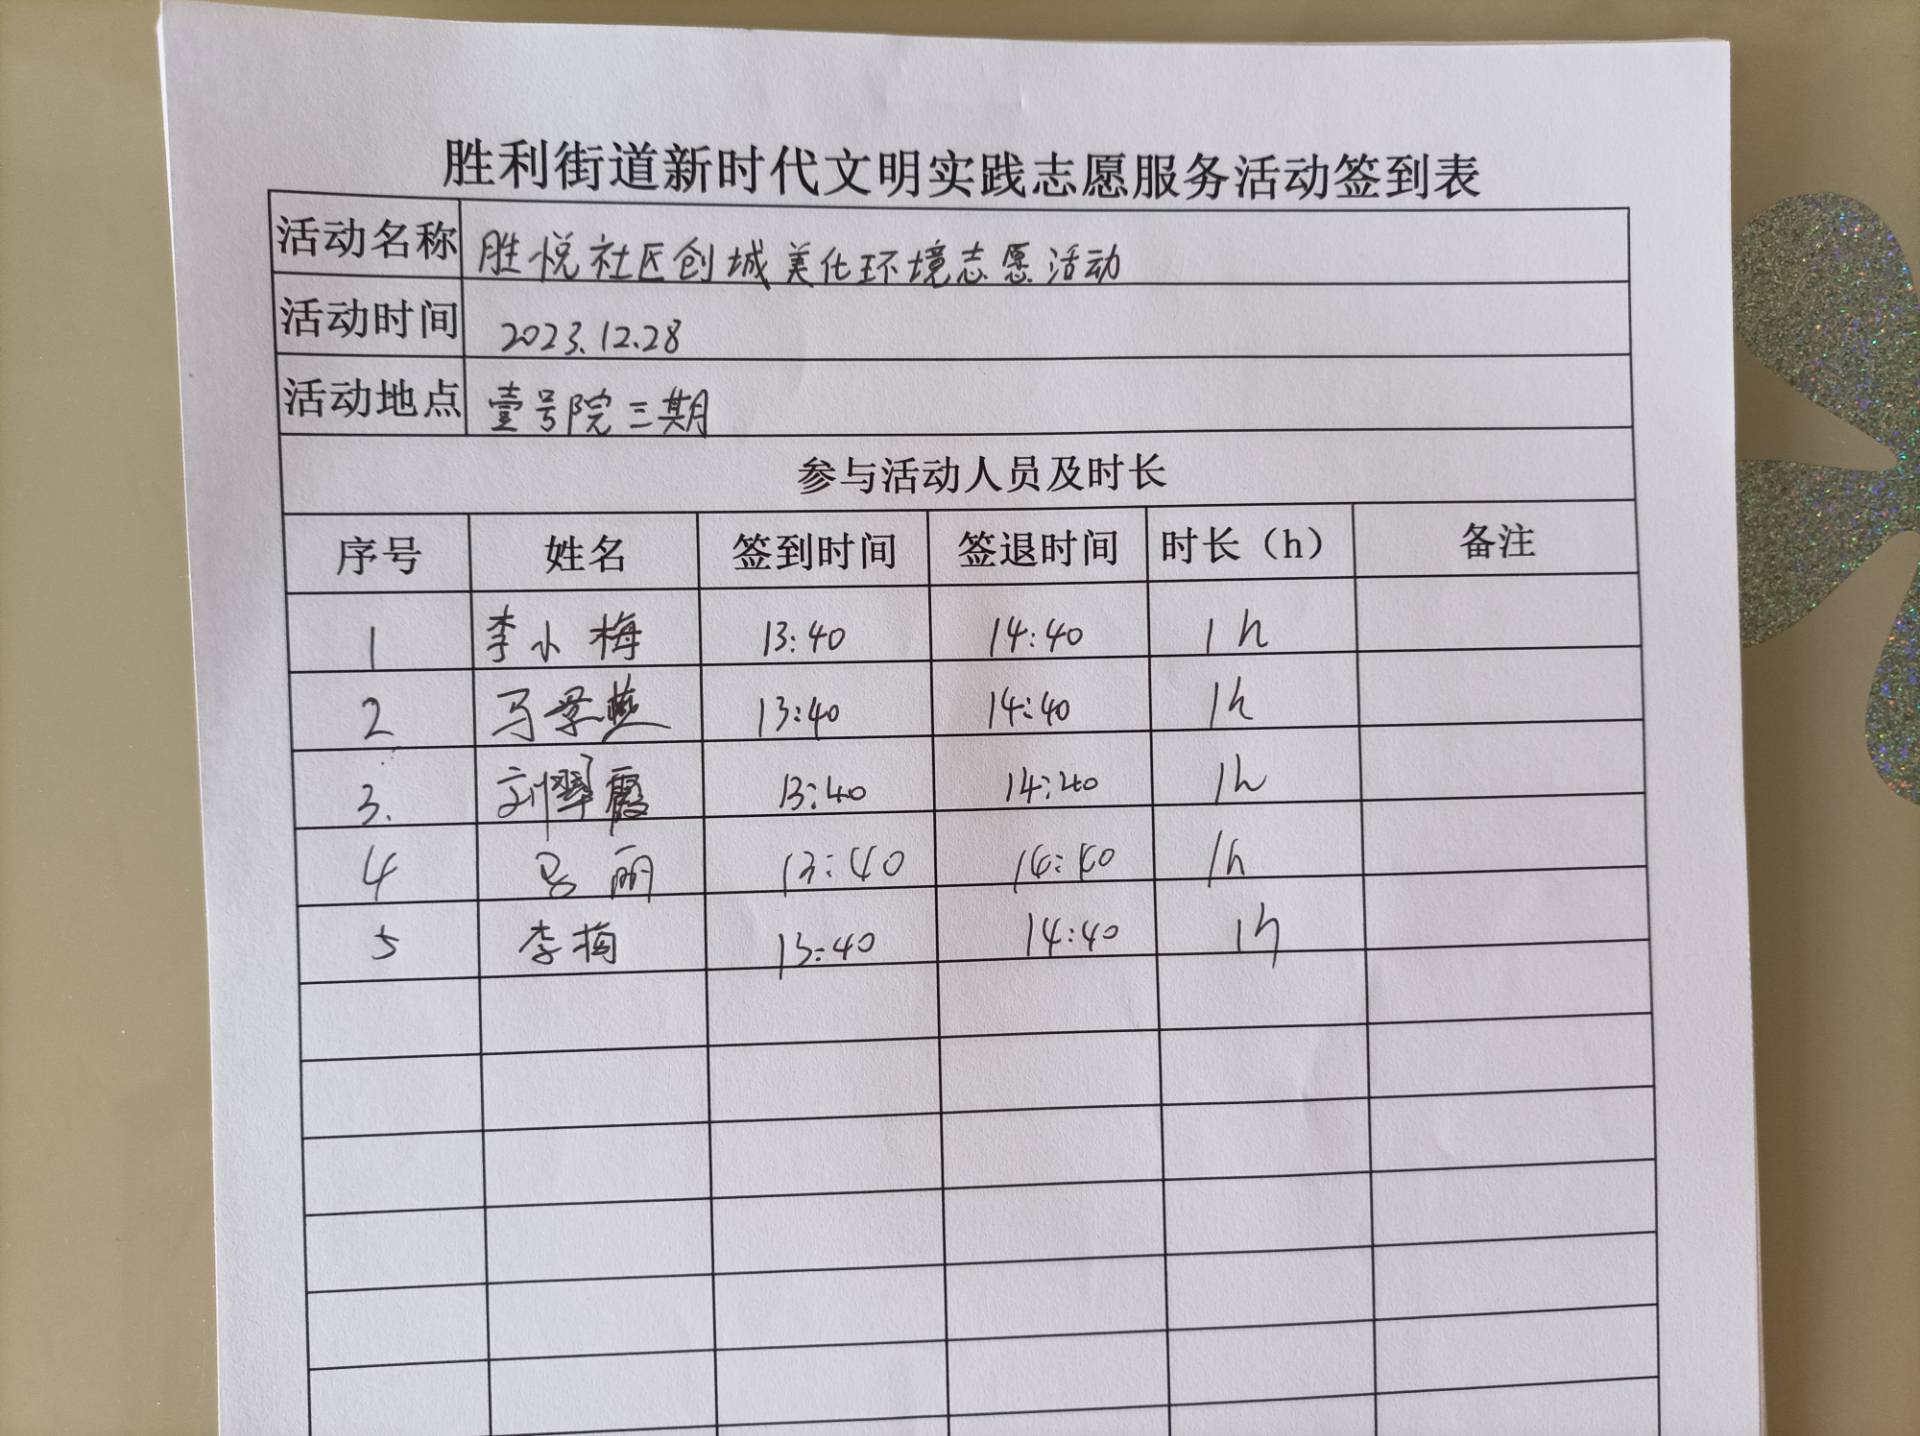 胜利街道新时代文明实践志愿服务活动签到表
活动名称 胜悦社区创城美化环境志愿活动
活动时间 2023.12.28
活动地点 壹号院三期
参与活动人员及时长
序号 姓名 签到时间 签退时间 时长（h） 备注
1 李小梅 13:40 14:40 1h
2 马景燕 13:40 14:40 1h
3. 刘翠霞 13:40 14:40 1h
4 丽 13:40 14:40 1h
5 李梅 13:40 14:40 1h